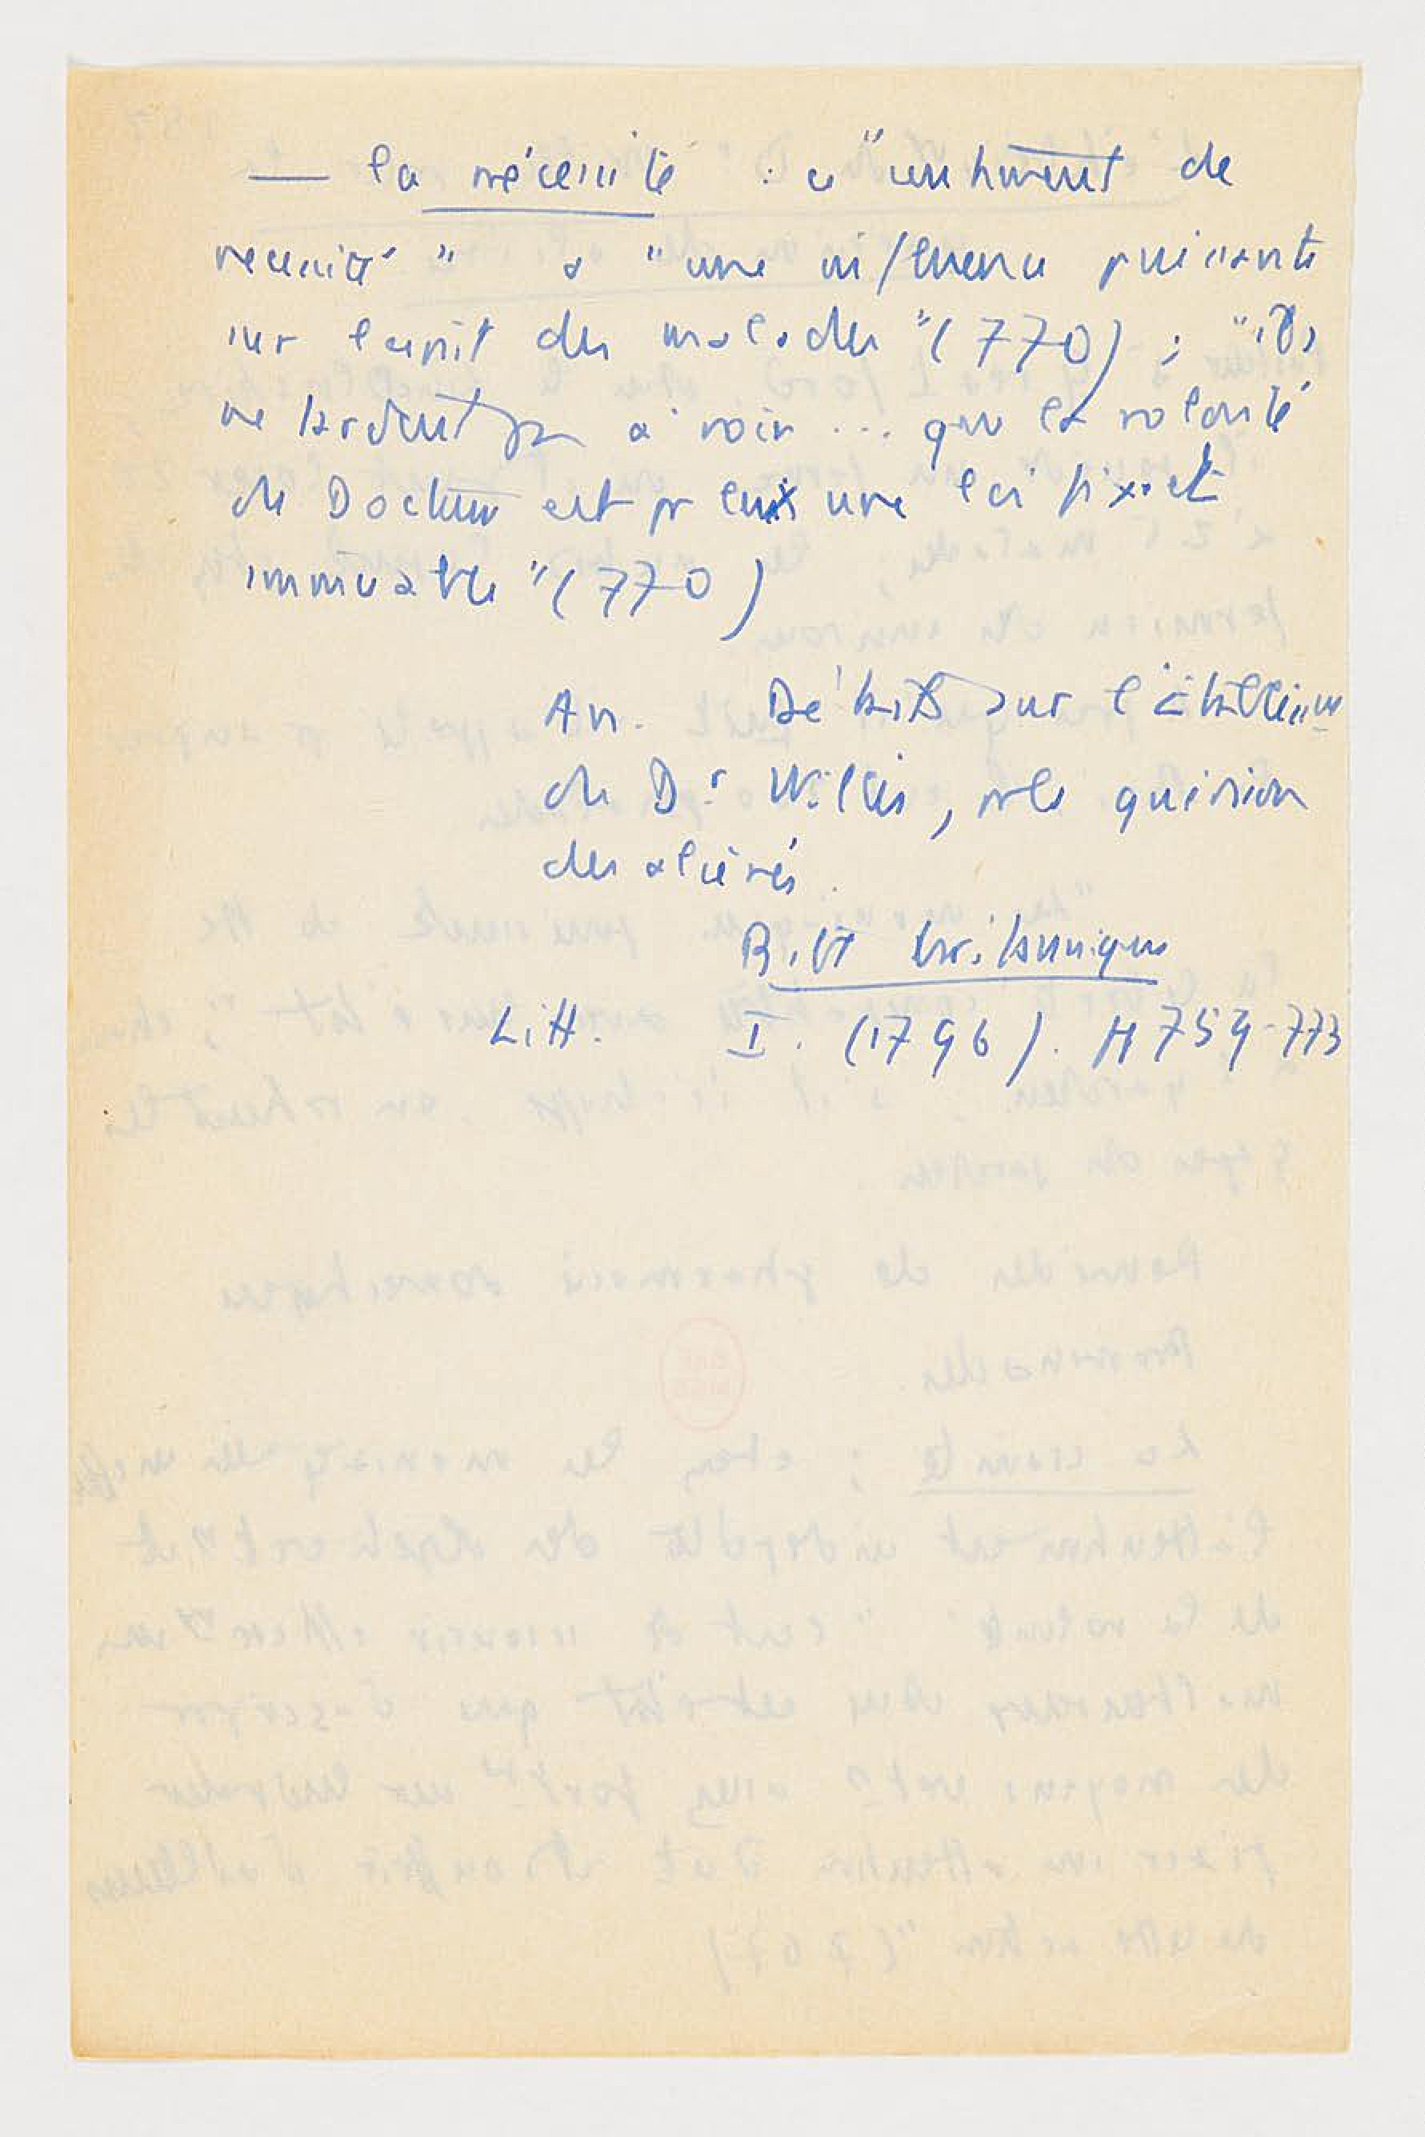 — la nécessité : ce "sentiment de
nécessité" a "une influence puissante
sur l'esprit des malades" (770) ; "ils
ne tardent pas à voir ... que la volonté
du Docteur est pr eux une loi fixe et
immuable" (770)
An. Détails sur l'établissem
du Dr Willis, pr la guérison
des aliénés.
Bibl britannique
Litt. I. (1796). pp 759-773